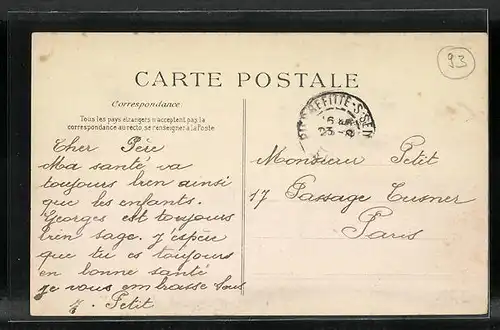 93
CARTE POSTALE
Correspondance
Tous les pays étrangers n'acceptent pas la
correspondance au recto, se renseigner à la Poste
Cher Père
Ma santé va
toujours bien ainsi
que les enfants.
Georges est toujours
bien sage. J'espère
que tu es toujours
en bonne santé
je vous embrasse tous
Petit
LAFFITTE-S-SEINE
Monsieur Petit
17 Passage
Paris